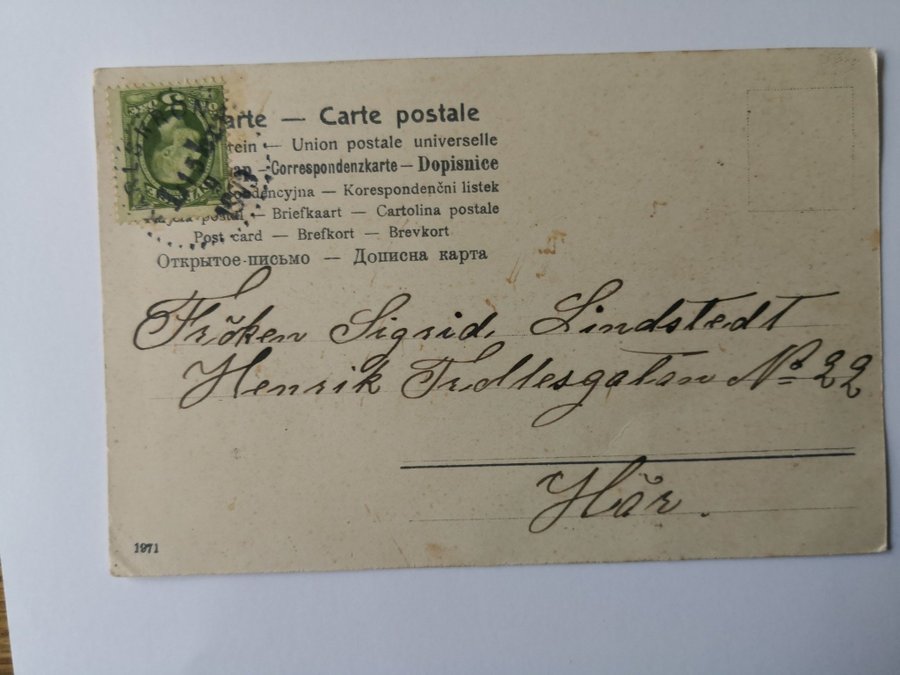 Carte postale
Union postale universelle
Correspondenzkarte — Dopisnice
Korespondenční listek
Briefkaart — Cartolina postale
Post card — Brefkort — Brevkort
Открытое-письмо — Дописна карта
Fröken Sigrid Lindstedt
Henrik No 22
Här.
1971